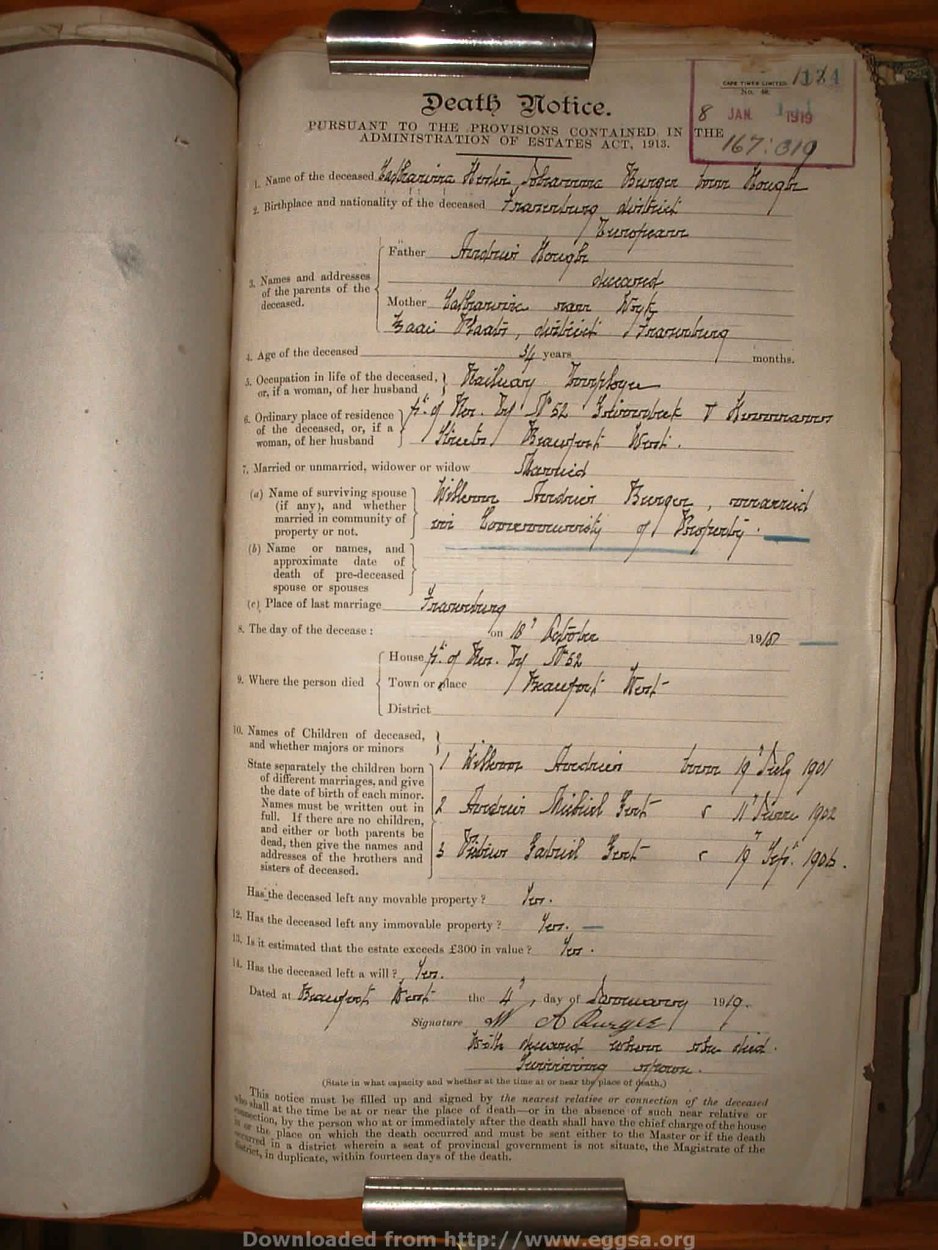 CAPE TIMES LIMITED.
8 JAN. 1919
167: 019
Death Notice.
PURSUANT TO THE PROVISIONS CONTAINED IN THE
ADMINISTRATION OF ESTATES ACT, 1913.
1. Name of the deceased Catharina Johanna Burger born Hough
2. Birthplace and nationality of the deceased Fraserburg district
European
3. Names and addresses of the parents of the deceased.
Father Andries Hough
deceased
Mother Catharina van Wyk
district Fraserburg
4. Age of the deceased years months.
5. Occupation in life of the deceased, or, if a woman, of her husband } Railway Employee
6. Ordinary place of residence of the deceased, or, if a woman, of her husband } No 52
Streets Beaufort West.
7. Married or unmarried, widower or widow Married
(a) Name of surviving spouse (if any), and whether married in community of property or not. } Willem Andries Burger, married
in Community of Property.
(b) Name or names, and approximate date of death of pre-deceased spouse or spouses }
(c) Place of last marriage Fraserburg
8. The day of the decease: on 18' October 191
9. Where the person died
House No 52
Town or place Beaufort West
District
10. Names of Children of deceased, and whether majors or minors
State separately the children born of different marriages, and give the date of birth of each minor. Names must be written out in full. If there are no children, and either or both parents be dead, then give the names and addresses of the brothers and sisters of deceased.
1 Willem Andries born 19' July 1901
2 Andries Michiel Gert 11' June 1902
3 Gabriel Gert 19' Sept. 1906.
Has the deceased left any movable property? Yes.
12. Has the deceased left any immovable property? Yes.
13. Is it estimated that the estate exceeds £300 in value? Yes.
14. Has the deceased left a will? Yes.
Dated at Beaufort West the 4' day of January 1919.
Signature W A Burger
With deceased when she died.
Surviving spouse.
(State in what capacity and whether at the time at or near the place of death.)
This notice must be filled up and signed by the nearest relative or connection of the deceased
who shall at the time be at or near the place of death—or in the absence of such near relative or
connection, by the person who at or immediately after the death shall have the chief charge of the house
in or the place on which the death occurred and must be sent either to the Master or if the death
occurred in a district wherein a seat of provincial government is not situate, the Magistrate of the
district, in duplicate, within fourteen days of the death.
Downloaded from http://www.eggsa.org